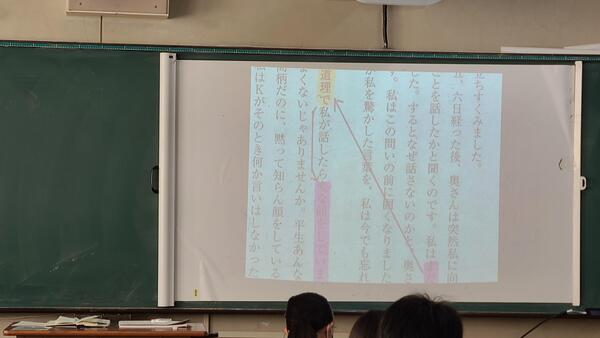 立ちすくみました。
五、六日経った後、奥さんは突然私に向
ことを話したかと聞くのです。私は
した。するとなぜ話さないのかと、奥さ
す。私はこの問いの前に固くなりました
が私を驚かした言葉を、私は今でも忘れ
道理で私が話したら変な顔をしていま
よくないじゃありませんか。平生あんな
間柄だのに、黙って知らん顔をしている
私はKがそのとき何か言いはしなかった